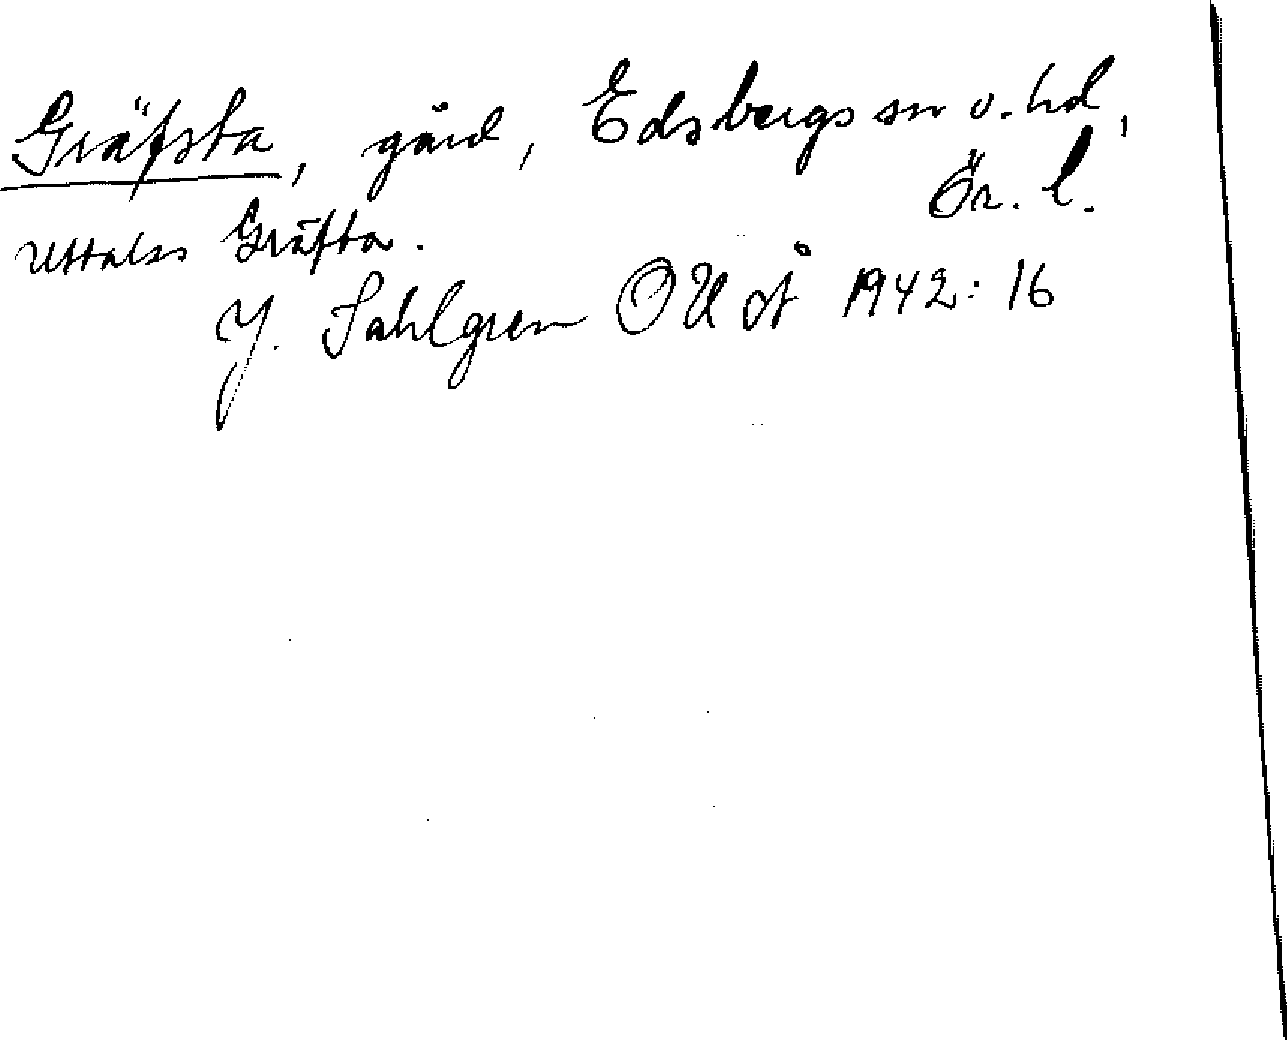 Gräfsta, gård, Edsbergs sn o. hd,
Ör. l.
Uttalas Gräfta.
J. Sahlgren OUÅ 1942: 16